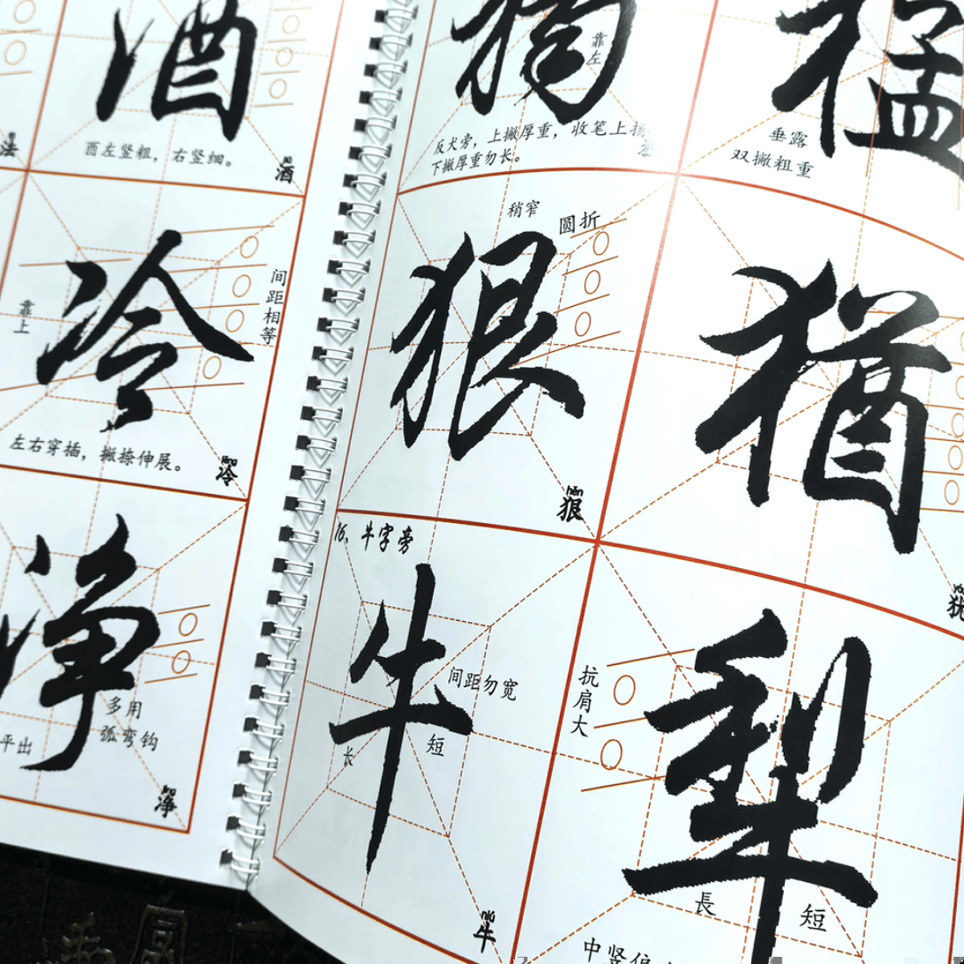 酒
酉左竖粗，右竖细。
酒
法
冷
间距相等
靠上
左右穿插，撇捺伸展。
lěng
冷
净
多用
弧弯钩
平出
净
靠左
反犬旁，上撇厚重，收笔上扬
下撇厚重勿长。
猛
垂露
双撇粗重
狠
稍窄
圆折
hěn
狠
猶
犹
16、牛字旁
牛
间距勿宽
长
短
niú
牛
犁
抗肩大
長
短
中竖偏